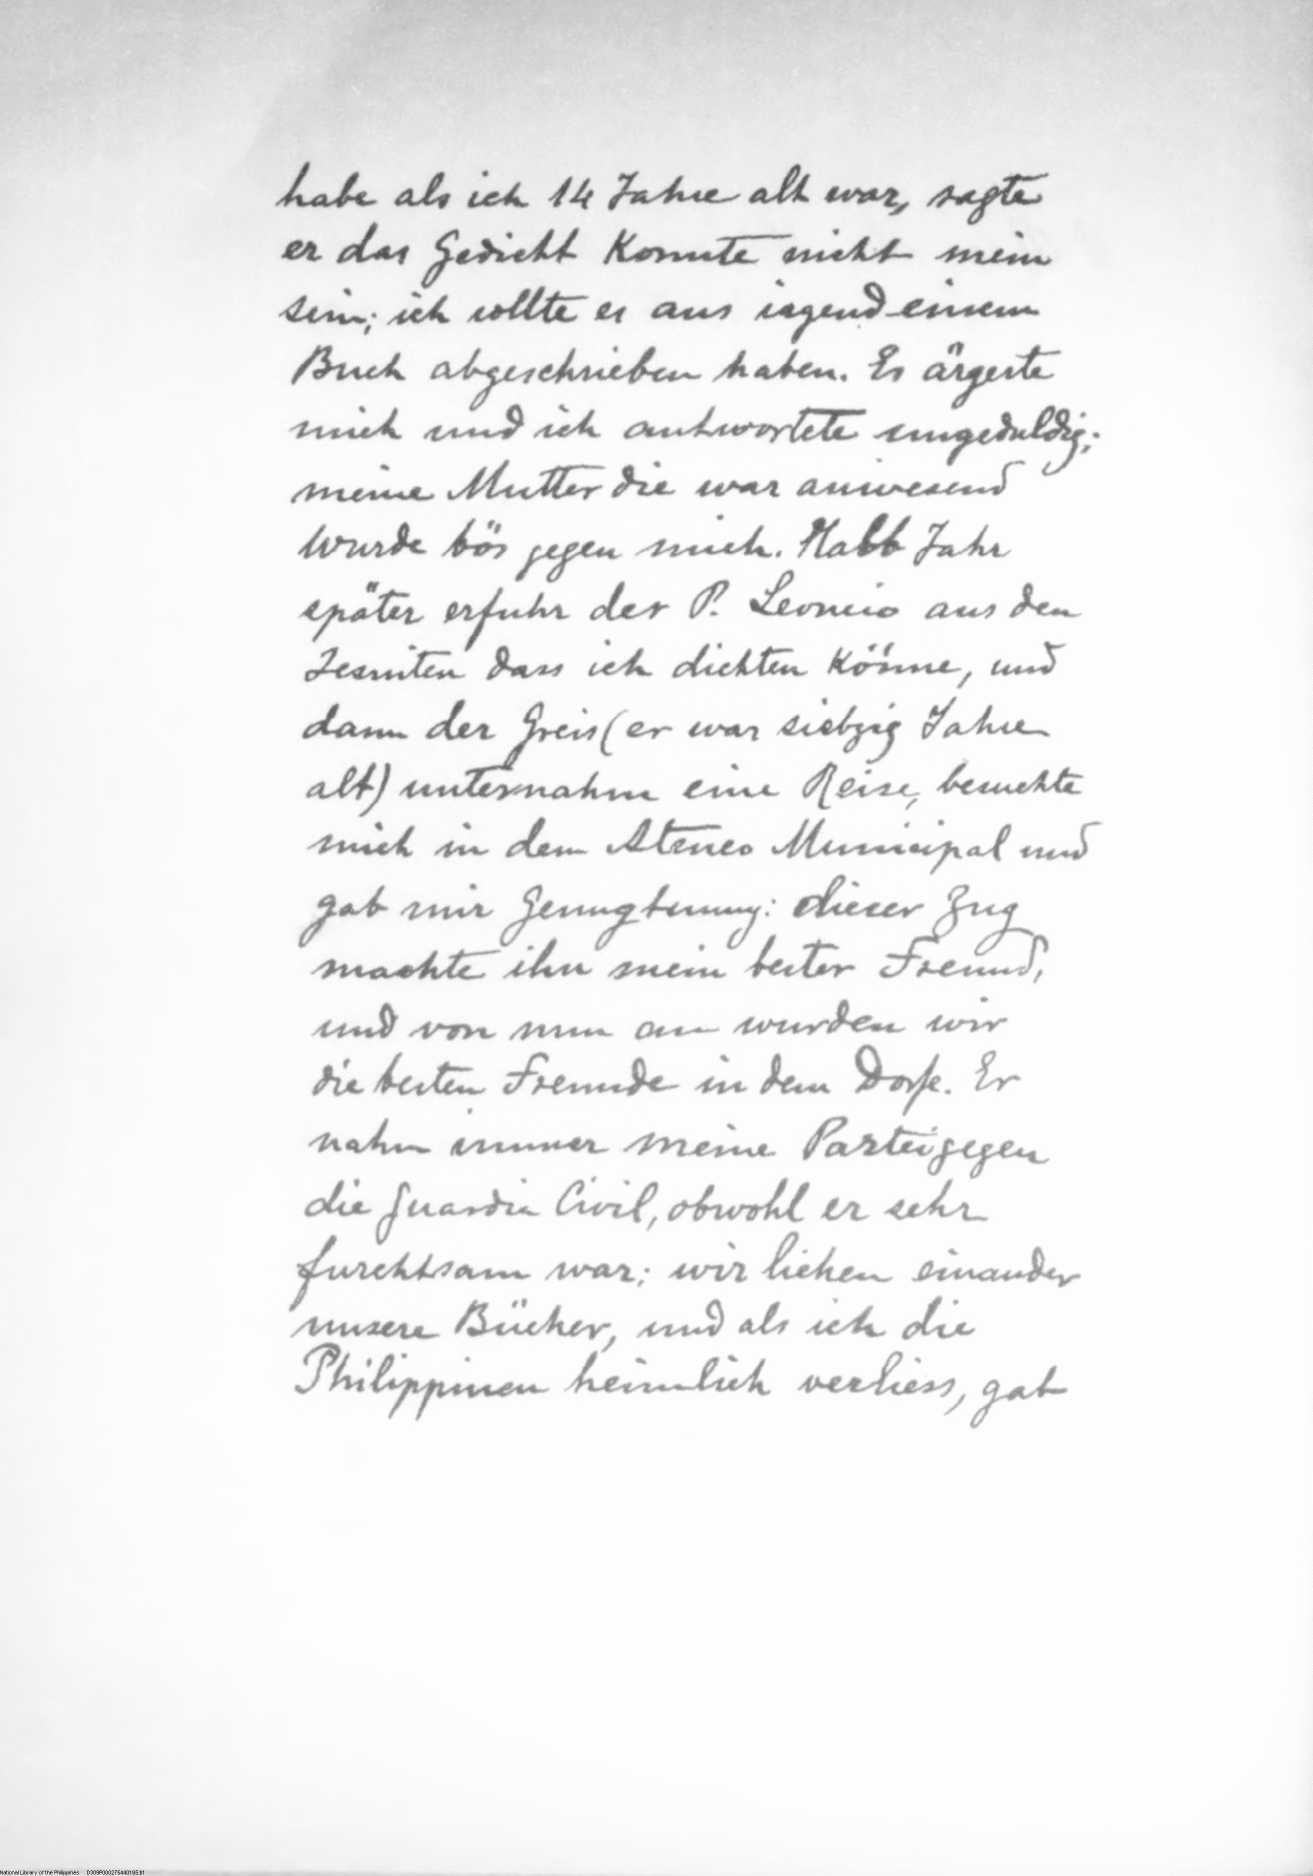 habe als ich 14 Jahre alt war, sagte
er das Gedicht Konnte nicht mein
sein; ich sollte es aus irgend einem
Buch abgeschrieben haben. Es ärgerte
mich und ich antwortete ungeduldig;
meine Mutter die war anwesend
wurde bös gegen mich. Halb Jahr
später erfuhr der P. Leoncio aus den
Jesuiten dass ich dichten Könne, und
dann der Greis (er war siebzig Jahre
alt) unternahm eine Reise, besuchte
mich in dem Ateneo Municipal und
gab mir Genugtuung: dieser Zug
machte ihn mein bester Freund,
und von nun an wurden wir
die besten Freunde in dem Dorfe. Er
nahm immer meine Partei gegen
die Guardia Civil, obwohl er sehr
furchtsam war; wir liehen einander
unsere Bücher, und als ich die
Philippinen heimlich verliess, gab
National Library of the Philippines